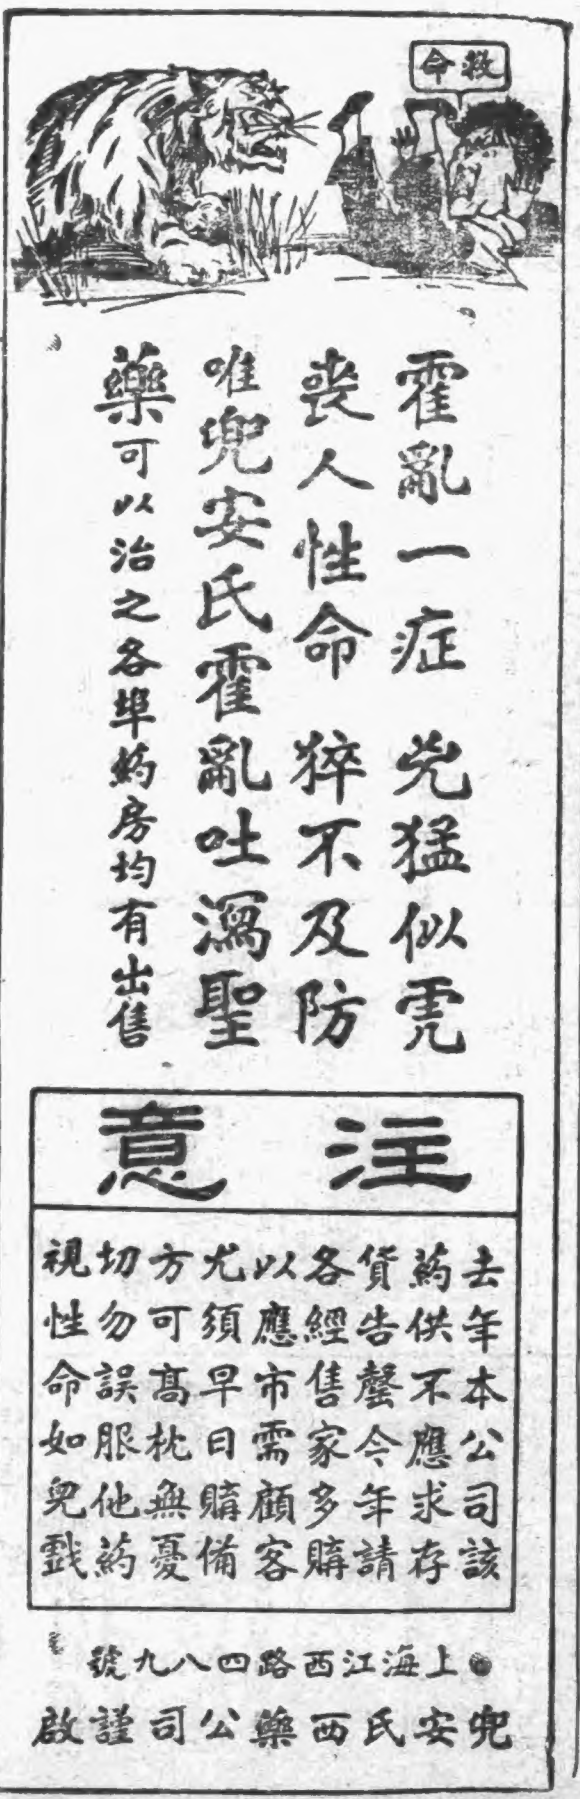 救命
霍亂一症 兇猛似虎
喪人性命 猝不及防
唯兜安氏霍亂吐瀉聖
藥可以治之各埠葯房均有出售
注意
去年本公司該
葯供不應求存
貨告罄今年請
各經售家多購
以應市需顧客
尤須早日購備
方可高枕無憂
切勿誤服他葯
視性命如兒戲
上海江西路四八九號
兜安氏西藥公司謹啟